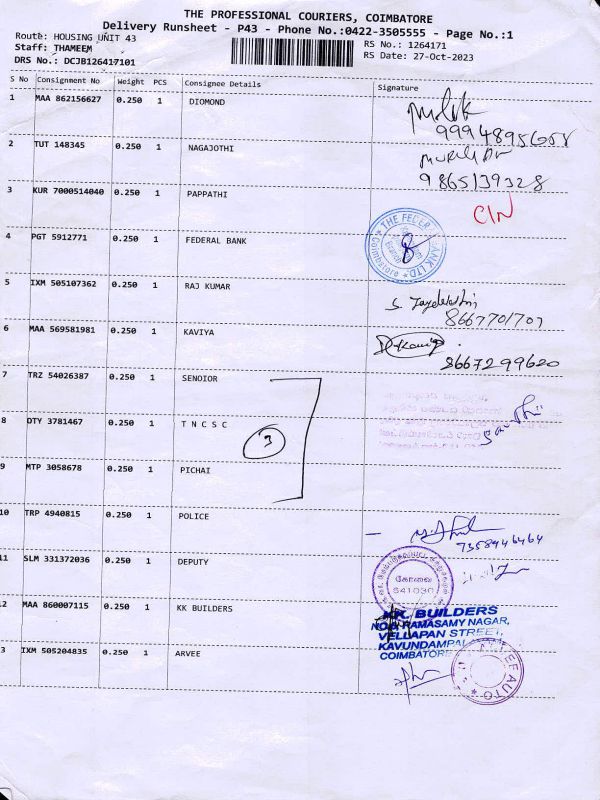 THE PROFESSIONAL COURIERS, COIMBATORE
Delivery Runsheet - P43 - Phone No.:0422-3505555 - Page No.:1
Route: HOUSING UNIT 43
Staff: THAMEEM
DRS No.: DCJB126417101
RS No.: 1264171
RS Date: 27-Oct-2023
S No Consignment No Weight PCS Consignee Details Signature
1 MAA 862156627 0.250 1 DIOMOND
2 TUT 148345 0.250 1 NAGAJOTHI
9865139328
3 KUR 7000514040 0.250 1 PAPPATHI
CIN
4 PGT 5912771 0.250 1 FEDERAL BANK
THE FEDER BANK LTD
Coimbatore
5 IXM 505107362 0.250 1 RAJ KUMAR
8667701707
6 MAA 569581981 0.250 1 KAVIYA
8667299620
7 TRZ 54026387 0.250 1 SENOIOR
8 OTY 3781467 0.250 1 T N C S C
3
9 MTP 3058678 0.250 1 PICHAI
10 TRP 4940815 0.250 1 POLICE
7358946464
11 SLM 331372036 0.250 1 DEPUTY
கோவை
641030
12 MAA 860007115 0.250 1 KK BUILDERS
KK BUILDERS
RAMASAMY NAGAR,
VELLAPAN STREET,
KAVUNDAMPAL
COIMBATORE
3 IXM 505204835 0.250 1 ARVEE
AUTO